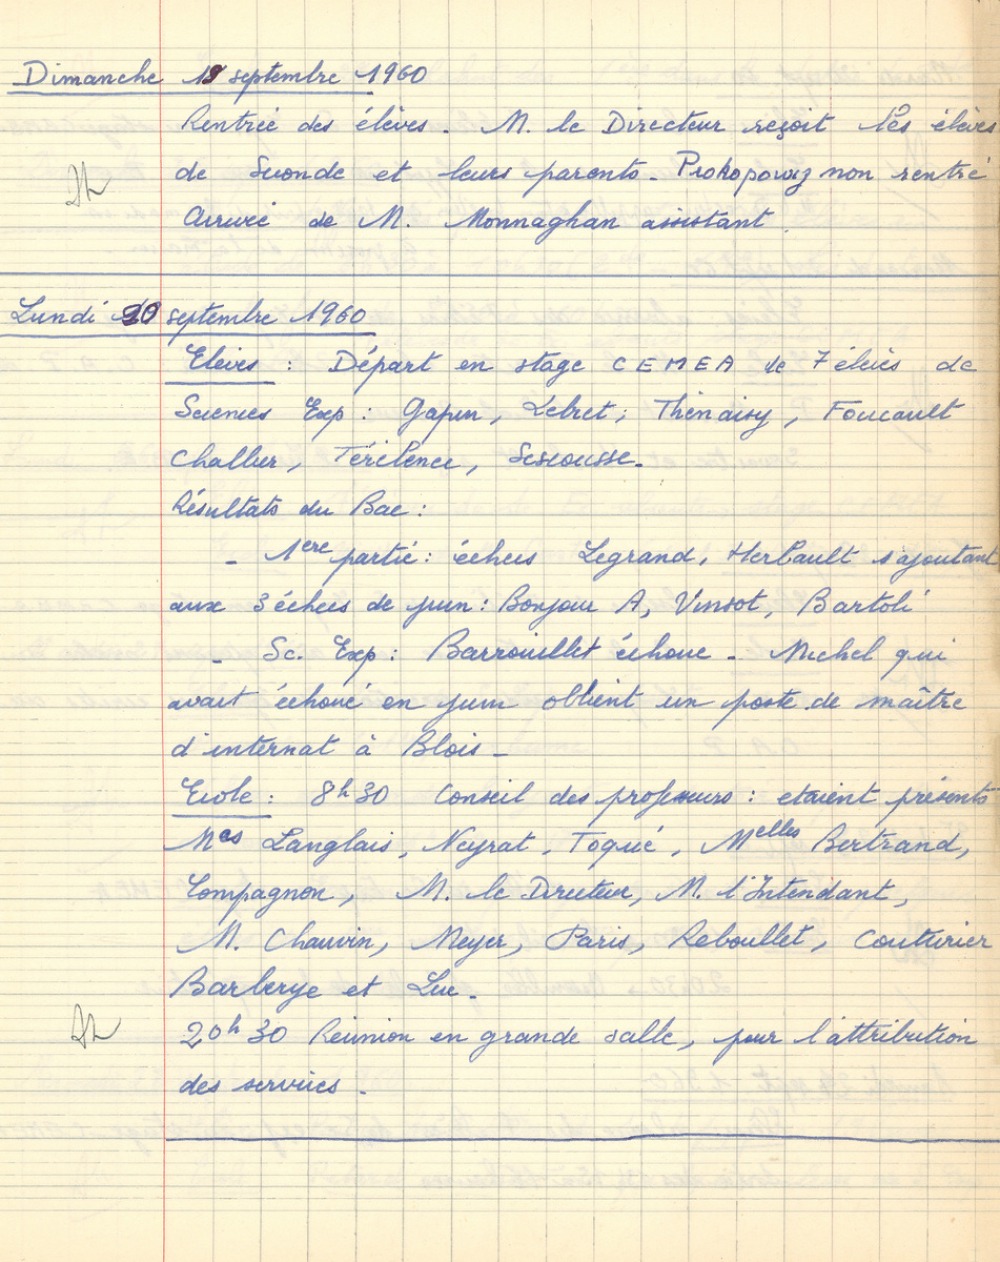 Dimanche 18 septembre 1960
Rentrée des élèves. M. le Directeur reçoit les élèves
de Seconde et leurs parents. Prokopowiz non rentré
Arrivée de M. Monnaghan assistant.
Lundi 19 septembre 1960
Elèves : Départ en stage CEMEA de 7 élèves de
Sciences Exp : Gapin, Lebret, Thénaisy, Foucault
Challier, Térilence, Sescousse.
Résultats du Bac :
- 1ère partie : échecs Legrand, Herbault s'ajoutant
aux 3 échecs de juin : Bonjour A, Vinsot, Bartoli
- Sc. Exp : Barrouillet échoue - Michel qui
avait échoué en juin obtient un poste de maître
d'internat à Blois -
Ecole : 8h30 Conseil des professeurs : etaient présents
Mes Langlais, Neyrat, Toqué, Melles Bertrand,
Compagnon, M. le Directeur, M. l'Intendant,
M. Chauvin, Meyer, Paris, Reboullet, Couturier
Barberye et Luc.
20h 30 Réunion en grande salle, pour l'attribution
des services.